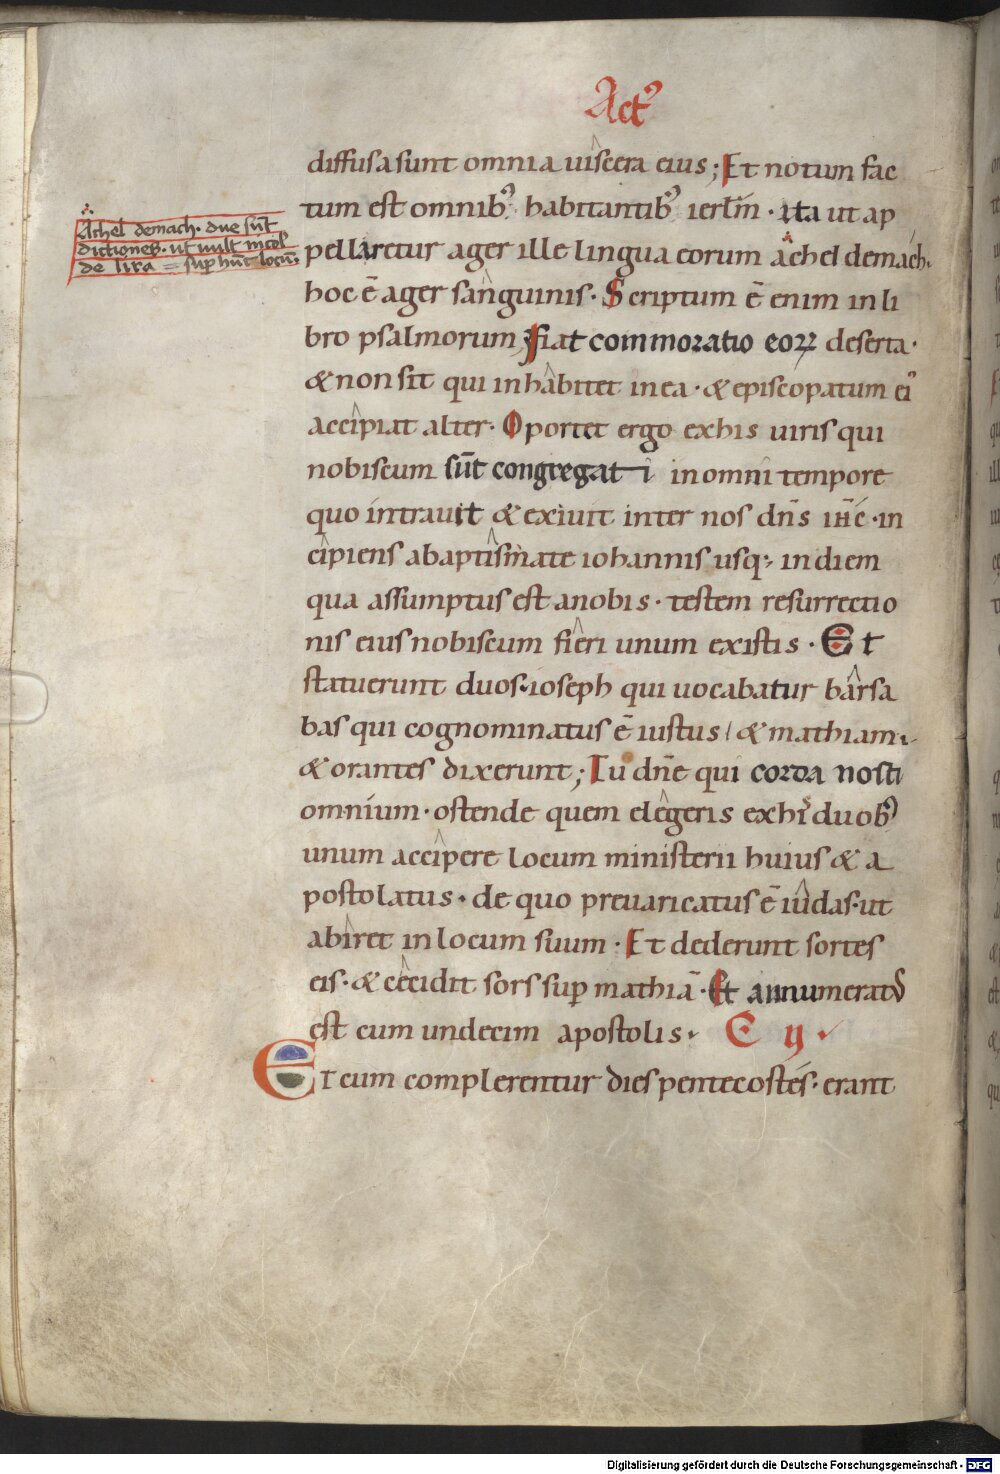 Act᷒
diffusa sunt omnia uiscera eius; Et notum fac
tum est omnib᷒ habitantib᷒ ierl̄m · ita ut ap
pellaretur ager ille lingua eorum achel demach·
hoc ē ager sanguinis · Scriptum ē enim in li
bro psalmorum, fiat commoratio eoꝝ deserta ·
& non sit qui inhabitet in ea · & episcopatum ei᷒
accipiat alter · Oportet ergo ex his uiris qui
nobiscum sūt congregati in omni tempore
quo intrauit & exiuit inter nos dn̄s ih̄c · in
cipiens a baptismate iohannis usq; in diem
qua assumptus est a nobis · testem resurrectio
nis eius nobiscum fieri unum ex istis · Et
statuerunt duos · ioseph qui uocabatur barsa
bas qui cognominatus ē iustus / & mathiam ·
& orantes dixerunt; Tu dn̄e qui corda nosti
omnium · ostende quem elegeris ex his duob᷒
unum accipere locum ministerii huius & a
postolatus · de quo preuaricatus ē iudas · ut
abiret in locum suum · Et dederunt sortes
eis · & cecidit sors suꝑ mathiā · Et annumerat᷒
est cum undecim apostolis · C ij ·
Et cum complerentur dies pentecostes · erant
Achel demach · due sūt
dictiones · ut uult nicol᷒
de lira = suꝑ hūc locū ·
Digitalisierung gefördert durch die Deutsche Forschungsgemeinschaft - DFG